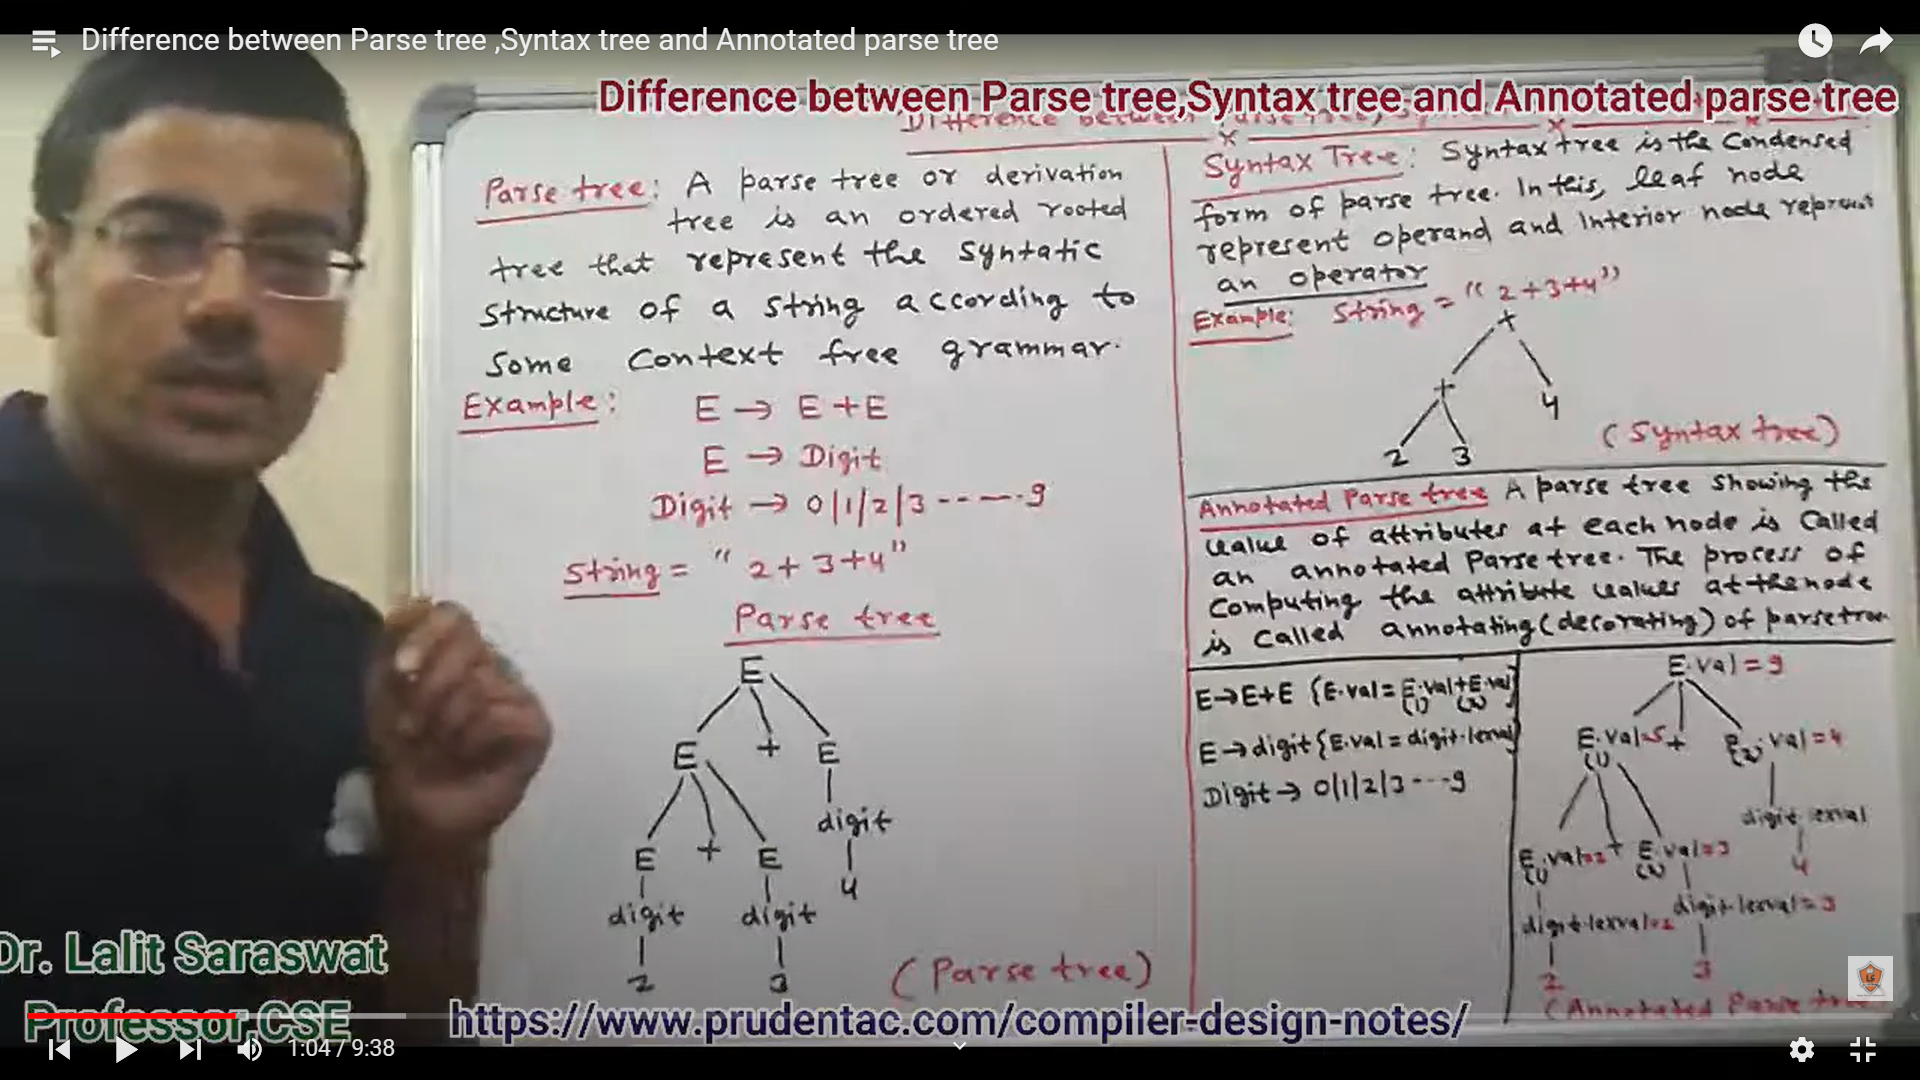 Difference between Parse tree ,Syntax tree and Annotated parse tree
Difference between Parse tree,Syntax tree and Annotated parse tree
Difference between
Parse tree: A parse tree or derivation
tree is an ordered rooted
tree that represent the syntatic
structure of a string according to
some context free grammar.
Example: E → E + E
E → Digit
Digit → 0|1|2|3 ------9
String = " 2+3+4"
Parse tree
E
E + E
digit
E + E
4
digit digit
2 3
(Parse tree)
Syntax Tree: Syntax tree is the Condensed
form of parse tree. In this, leaf node
represent operand and Interior node represent
an operator
Example: String = " 2+3+4"
+
+ 4
2 3
(Syntax tree)
Annotated Parse tree A parse tree showing the
value of attributes at each node is Called
an annotated Parse tree. The process of
Computing the attribute values at the node
is called annotating (decorating) of parse tree
E→E+E {E.val = E.val+E.val}
(1) (2)
E→digit {E.val = digit.lexval}
Digit→ 0|1|2|3---9
E.val = 9
E.val=5 + E.val=4
(1) (2)
digit lexval
E.val=2 + E.val=3
(1) (2)
4
digit.lexval=2 digit.lexval=3
2 3
(Annotated Parse tree
Dr. Lalit Saraswat
Professor,CSE
https://www.prudentac.com/compiler-design-notes/
1:04 / 9:38